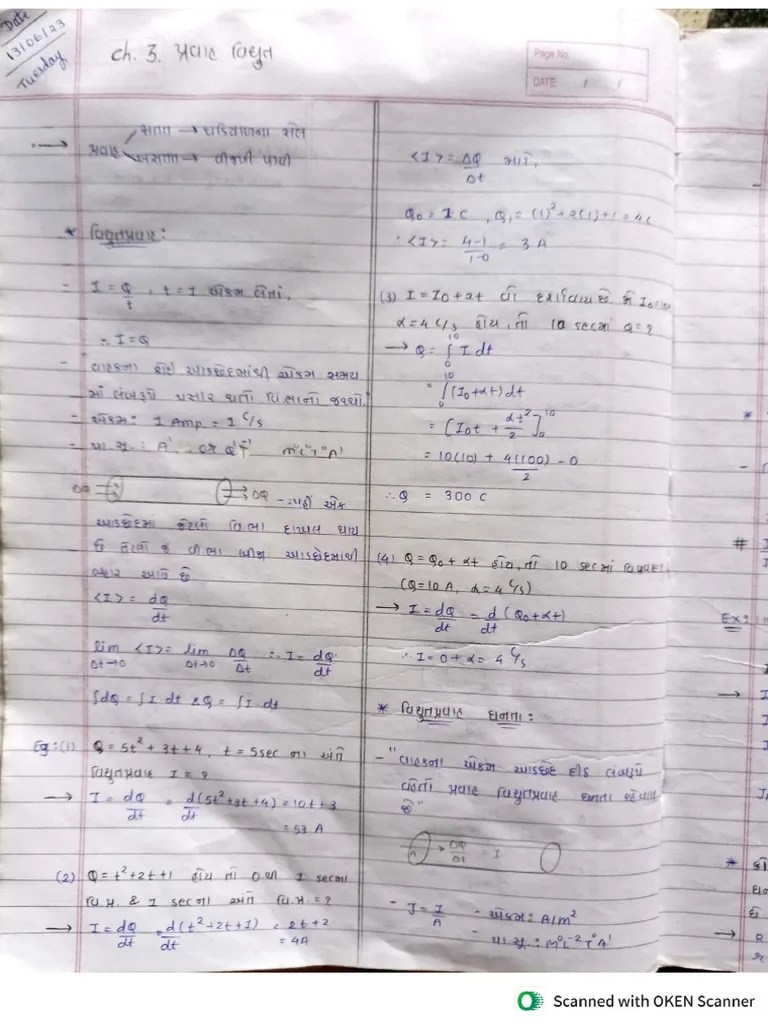 Date
13/06/23
Tuesday
Ch. 3. પ્રવાહ વિદ્યુત
Page No.
DATE: / /
→ પ્રવાહ
સતત → ઘડિયાળના સેલ
અસતત → વીજળી થવી
* વિદ્યુતપ્રવાહ:
- I = Q/t , t = 1 એકમ લેતાં,
∴ I = Q
- વાહકના કોઈ આડછેદમાંથી એકમ સમય
માં લંબરૂપે પસાર થતો વિભાનો જથ્થો.
- એકમ: 1 Amp = 1 C/s
- પા.સૂ.: A¹ or Q¹T⁻¹ M⁰L⁰T⁰A¹
ΔQ → → ΔQ - અહીં એક
આડછેદમાં જેટલો વિભા દાખલ થાય
છે તેટલો જ વીભા બીજા આડછેદમાંથી
બહાર આવે છે
<I> = dQ/dt
lim Δt→0 <I> = lim Δt→0 ΔQ/Δt ∴ I = dQ/dt
∫dQ = ∫I dt Q = ∫I dt
Eg:(1) Q = 5t² + 3t + 4, t = 5sec ના અંતે
વિદ્યુતપ્રવાહ I = ?
→ I = dQ/dt = d(5t²+3t+4)/dt = 10t+3
= 53 A
(2) Q = t²+2t+1 હોય તો 0 થી 1 secમાં
વિ.પ્ર. & 1 secના અંતે વિ.પ્ર. = ?
→ I = dQ/dt = d(t²+2t+1)/dt = 2t+2
= 4A
<I> = ΔQ/Δt માટે,
Q₀ = 1 C , Q₁ = (1)²+2(1)+1 = 4C
∴ <I> = 4-1/1-0 = 3 A
(3) I = I₀ + αt
α = 4 C/s હોય, તો 10 secમાં Q = ?
→ Q = ∫₀¹⁰ I dt
= ∫₀¹⁰ (I₀+αt) dt
= [I₀t + αt²/2]₀¹⁰
= 10(10) + 4(100)/2 - 0
∴ Q = 300 C
(4) Q = Q₀ + αt હોય, તો 10 secમાં
(Q=10 A, α = 4 C/s)
→ I = dQ/dt = d/dt (Q₀+αt)
∴ I = 0 + α = 4 C/s
* વિદ્યુતપ્રવાહ ઘનતા:
- "વાહકના એકમ આડછેદ દીઠ લંબરૂપે
વહેતો પ્રવાહ વિદ્યુતપ્રવાહ ઘનતા કહેવાય
છે"
→ ΔQ/Δt = I
- J = I/A - એકમ: A/m²
- પા.સૂ.: M⁰L⁻²T⁰A¹
#
Ex:
Scanned with OKEN Scanner